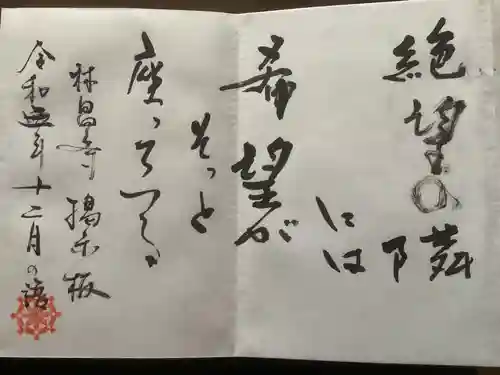 絶望の隣
には
希望が
そっと
座っている
林昌寺 掲示板
令和五年十二月の語